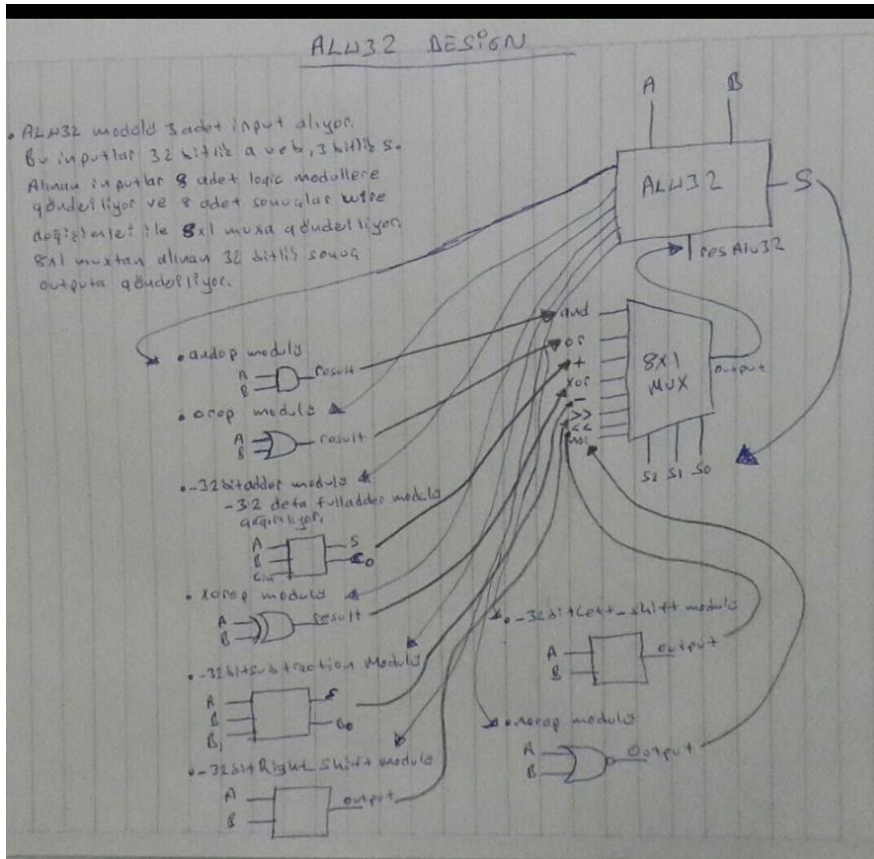 ALU32 DESİGN
A B
• ALU32 modülü 3 adet input alıyor.
Bu inputlar 32 bitlik a ve b, 3 bitlik s.
Alınan inputlar 8 adet logic modullere
gönderiliyor ve 8 adet sonuçlar wire
değişkenleri ile 8x1 muxa gönderiliyor.
8x1 muxtan alınan 32 bitlik sonuç
outputa gönderiliyor.
ALU32
S
resAlu32
and
or
+
xor
-
>>
<<
nor
8X1
MUX
output
S2 S1 S0
• andop modulü
A
B
result
• orop modulü
A
B
result
• -32bitadder modulü
-32 defa fulladder modulü
çağırılıyor.
A
B
Cin
S
Co
• xorop modulü
A
B
result
• -32bitsubtraction Modulü
A
B
Bi
S
Bo
• -32bitRight Shift modulü
A
B
output
• -32bitLeft-shift modulü
A
B
output
• norop modulü
A
B
output